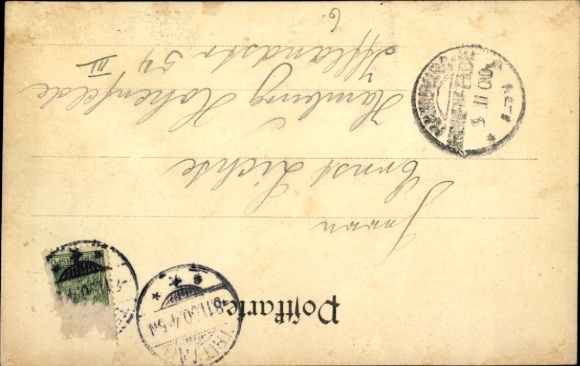 Postkarte
Herrn
Ernst Lichte
Hamburg Hohenfelde
Ifflandstr 54 III
6.
8.11.00.4-5N